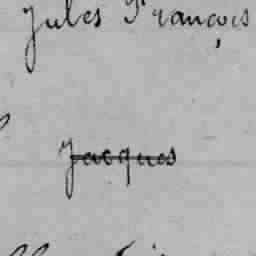 Jules François
Jacques